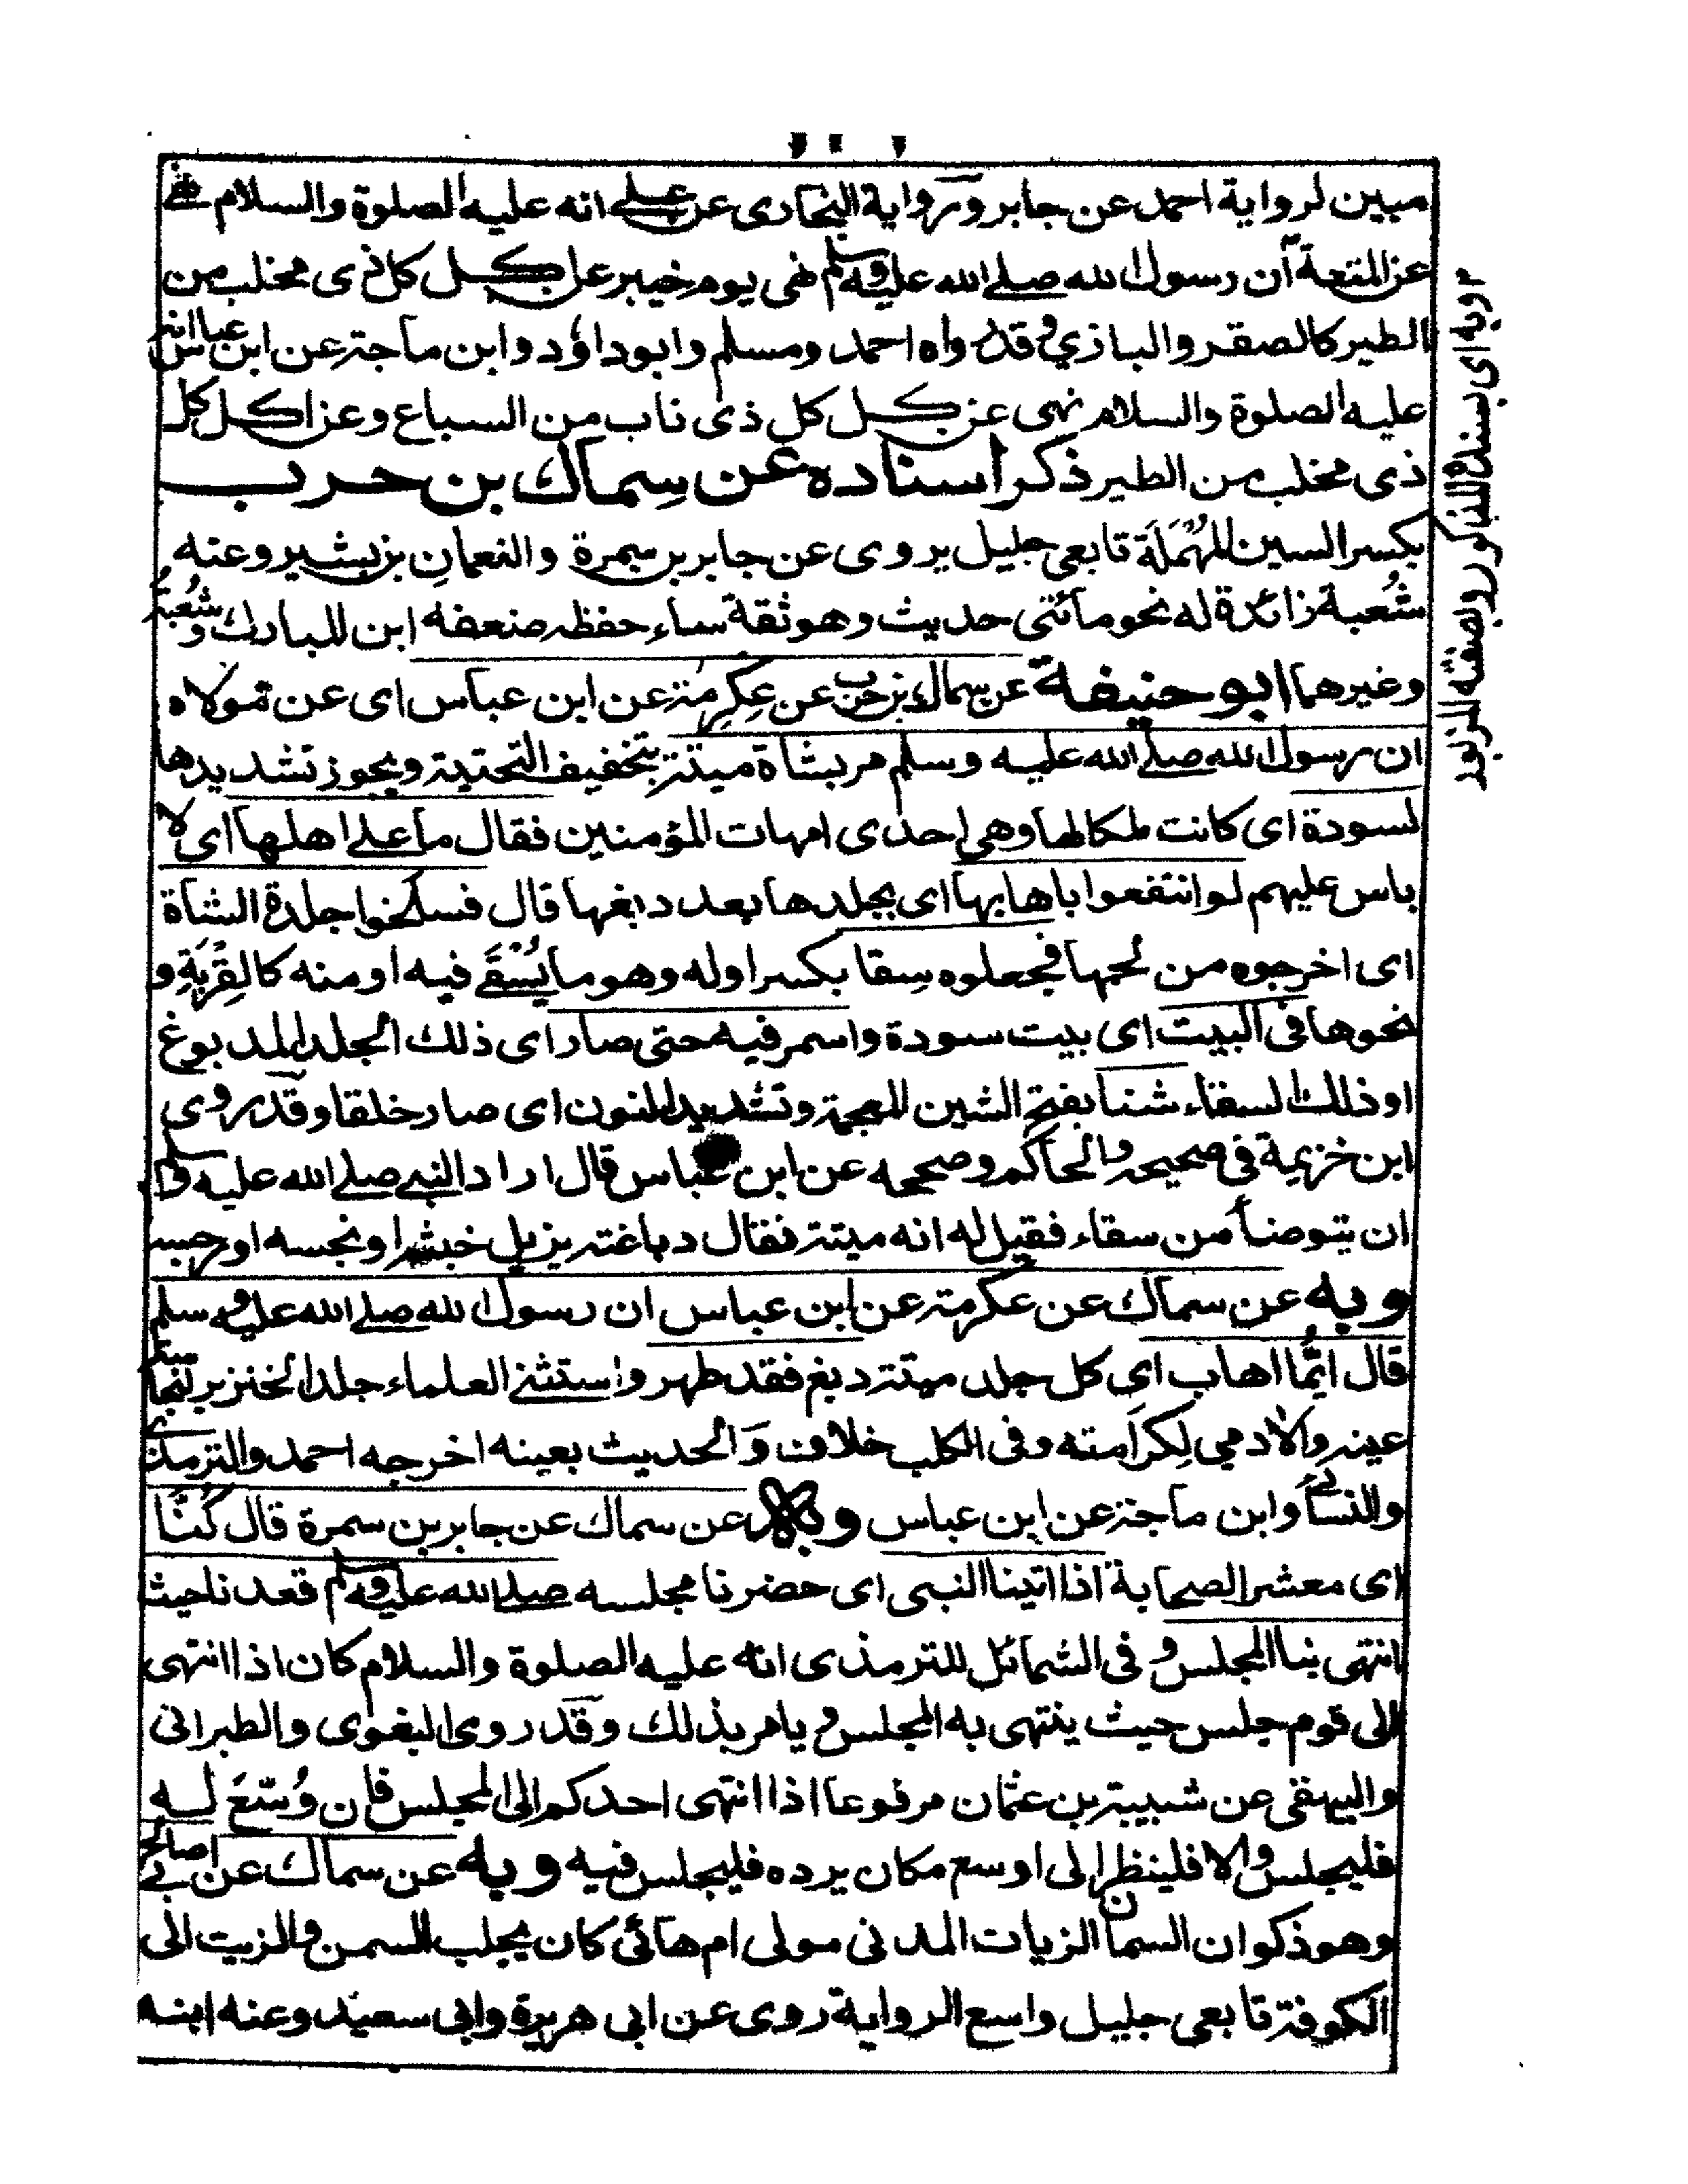 مبين لرواية احمد عن جابر ورواية البخارى عن على انه عليه الصلوة والسلام نهى
عن المتعة ان رسول الله صلى الله عليه وسلم نهى يوم خيبر عن اكل كل ذى مخلب من
الطير كالصقر والبازي وقد رواه احمد ومسلم وابوداؤد وابن ماجة عن ابن عباس انه
عليه الصلوة والسلام نهى عن اكل كل ذى ناب من السباع وعن اكل كل
ذى مخلب من الطير ذكر اسناده عن سماك بن حرب
بكسر السين المهملة تابعي جليل يروى عن جابر بن سمرة والنعمان بن بشير وعنه
شعبة زائدة له نحو مائتى حديث وهو ثقة ساء حفظه ضعفه ابن المبارك وشعبة
وغيرهما ابو حنيفة عن سماك بن حرب عن عكرمة عن ابن عباس اى عن مولاه
ان رسول الله صلى الله عليه وسلم مر بشاة ميتة بتخفيف التحتية ويجوز تشديدها
لسودة اى كانت ملكا لها وهي احدى امهات المؤمنين فقال ما على اهلها اي لا
باس عليهم لو انتفعوا باهابها اى بجلدها بعد دبغها قال فسلخوا جلدة الشاة
اى اخرجوه من لحمها فجعلوه سقا بكسر اوله وهو ما يسقى فيه او منه كالقربة و
نحوها فى البيت اى بيت سودة واسمر فيه حتى صار اى ذلك الجلد المدبوغ
او ذلك السقاء شنا بفتح الشين المعجمة وتشديد النون اى صار خلقا وقد روى
ابن خزيمة فى صحيحه والحاكم وصححه عن ابن عباس قال اراد النبي صلى الله عليه وسلم
ان يتوضأ من سقاء فقيل له انه ميتة فقال دباغته يزيل خبثه او نجسه او رجسه
وبه عن سماك عن عكرمة عن ابن عباس ان رسول الله صلى الله عليه وسلم
قال ايما اهاب اى كل جلد ميتة دبغ فقد طهر واستثنى العلماء جلد الخنزير لنجاسة
عينه والادمي لكرامته وفى الكلب خلاف والحديث بعينه اخرجه احمد والترمذي
والنسائي وابن ماجة عن ابن عباس وبه عن سماك عن جابر بن سمرة قال كنا
اى معشر الصحابة اذا اتينا النبى اى حضرنا مجلسه صلى الله عليه وسلم قعدنا حيث
انتهى بنا المجلس وفى الشمائل للترمذى انه عليه الصلوة والسلام كان اذا انتهى
الى قوم جلس حيث ينتهى به المجلس ويامر بذلك وقد روى البغوى والطبرانى
والبيهقى عن شيبة بن عثمان مرفوعا اذا انتهى احدكم الى المجلس فان وسع له
فليجلس والا فلينظر الى اوسع مكان يرده فليجلس فيه وبه عن سماك عن ابي صالح
وهو ذكوان السمان الزيات المدنى مولى ام هائى كان يجلب السمن والزيت الى
الكوفة تابعى جليل واسع الرواية روى عن ابى هريرة وابى سعيد وعنه ابنه
وبه اى بسنده المذكور وبصفته المزبور